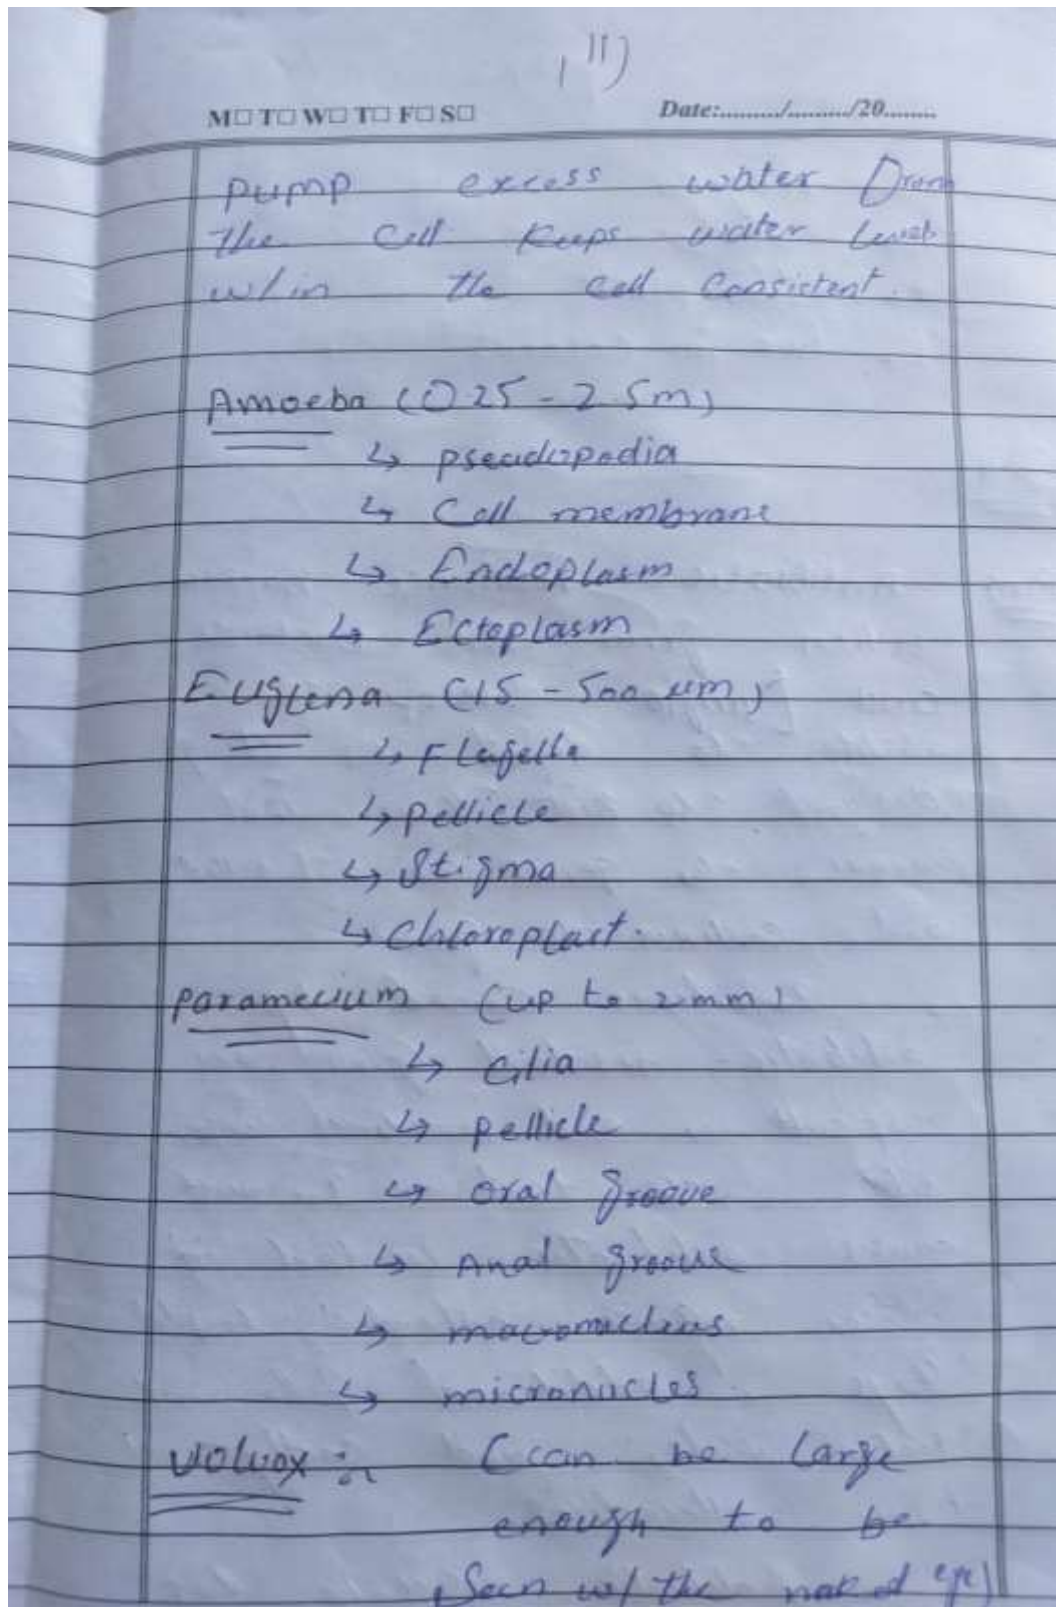 M□ T□ W□ T□ F□ S□ Date:........./........./20........
pump excess water from
the cell keeps water level
w/in the cell consistent.
Amoeba (025 - 2.5m)
↳ pseudopodia
↳ Cell membrane
↳ Endoplasm
↳ Ectoplasm
Euglena (15 - 500 µm)
↳ Flagella
↳ pellicle
↳ Stigma
↳ Chloroplast.
paramecium (up to 2mm)
↳ cilia
↳ pellicle
↳ oral groove
↳ Anal groove
↳ macronucleus
↳ micronucles
volvox :- (can be large
enough to be
seen w/ the naked eye)